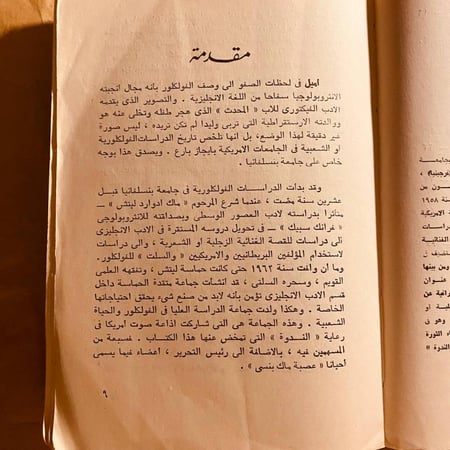 مقدمة
اميل فى لحظات الصفو الى وصف الفولكلور بأنه مجال انجبته
الانثروبولوجيا سفاحا من اللغة الانجليزية . والتصوير الذى يقدمه
الادب الفيكتورى للأب « المحدث » الذى هجر طفله وتخلى عنه هو
ووالدته الارستقراطية التى تربى وليدا لم تكن تريده ، ليس صورة
غير دقيقة لهذا الوضع، بل انها تلخص تاريخ الدراسات الفولكلورية
او الشعبية فى الجامعات الامريكية بايجاز بارع . ويصدق هذا بوجه
خاص على جامعة بنسلفانيا .
وقد بدأت الدراسات الفولكلورية فى جامعة بنسلفانيا قبل
عشرين سنة مضت ، عندما شرع المرحوم « ماك ادوارد ليتش »
متأثرا بدراسته لادب العصور الوسطى وبصداقته للانثروبولوجى
« فرانك سبيك » ، فى تحويل دروسه المستقرة فى الادب الانجليزى
الى دراسات للقصة الغنائية الزجلية او الشعرية ، والى دراسات
لاستخدام المؤلفين البريطانيين والامريكيين « والسلت » للفولكلور.
وما أن وافت سنة ١٩٦٢ حتى كانت حماسة ليتش ، وتفقهه العلمى
القويم ، وسحره السلتى ، قد أنشأت جماعة متقدة الحماسة داخل
قسم الادب الانجليزى تؤمن بأنه لابد من صنع شىء يحقق احتياجاتها
الخاصة . وهكذا ولدت جماعة الدراسة العليا فى الفولكلور والحياة
الشعبية . وهذه الجماعة هى التى شاركت اذاعة صوت امريكا فى
رعاية « الندوة » التى تمخض عنها هذا الكتاب . فسبعة من
المسهمين فيه ، بالاضافة الى رئيس التحرير ، أعضاء فيما يسمى
أحيانا « عصبة ماك بنسى » .
٩